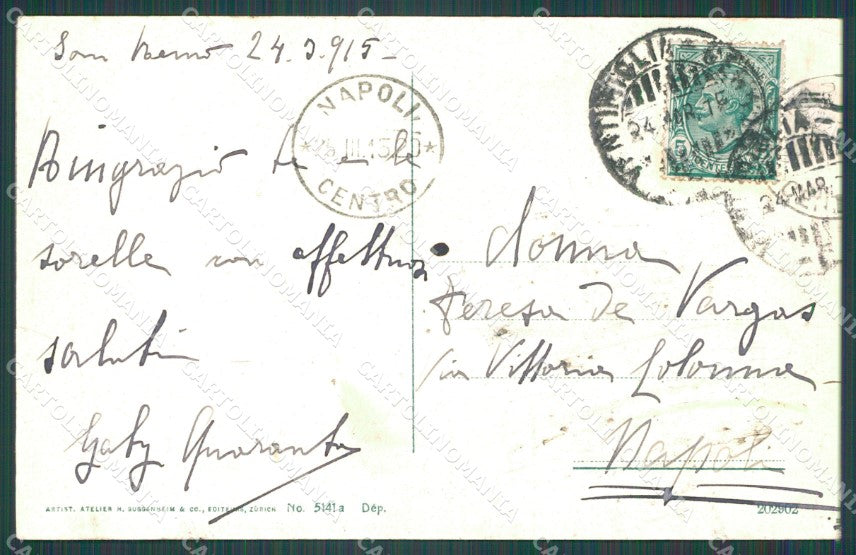 San Remo 24.3.915-
Ringrazio te e le
sorelle con affettuosi
saluti
Gaby Quaranta
NAPOLI
CENTRO
VENTIMIGLIA
24 MAR 15
24 MAR
donna
Teresa de Vargas
Via Vittoria Colonna
Napoli
ARTIST. ATELIER H. GUGGENHEIM & CO., EDITEURS, ZÜRICH No. 5141a Dép.
202902
CARTOLINOMANIA